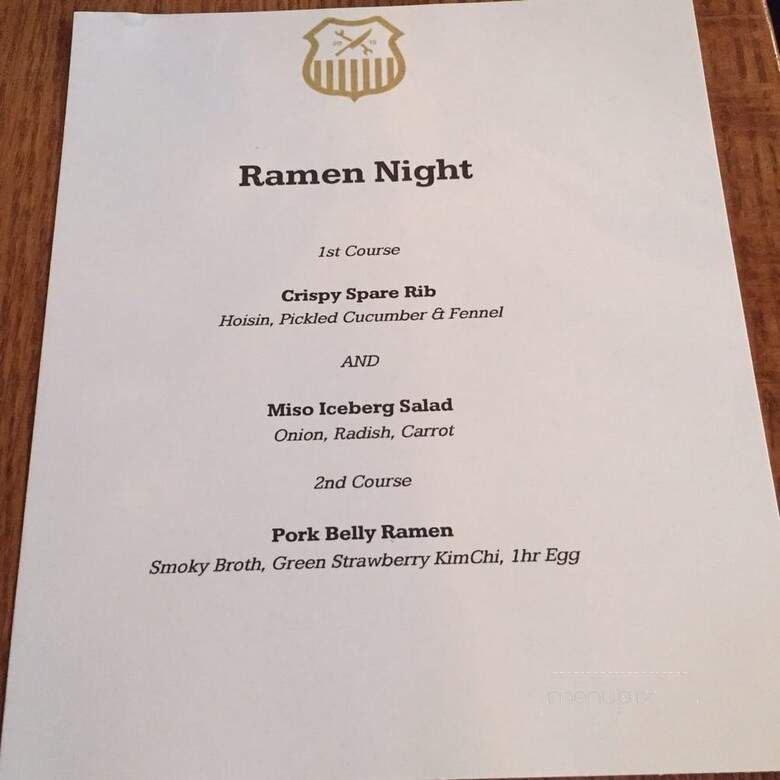 Ramen Night
1st Course
Crispy Spare Rib
Hoisin, Pickled Cucumber & Fennel
AND
Miso Iceberg Salad
Onion, Radish, Carrot
2nd Course
Pork Belly Ramen
Smoky Broth, Green Strawberry KimChi, 1hr Egg